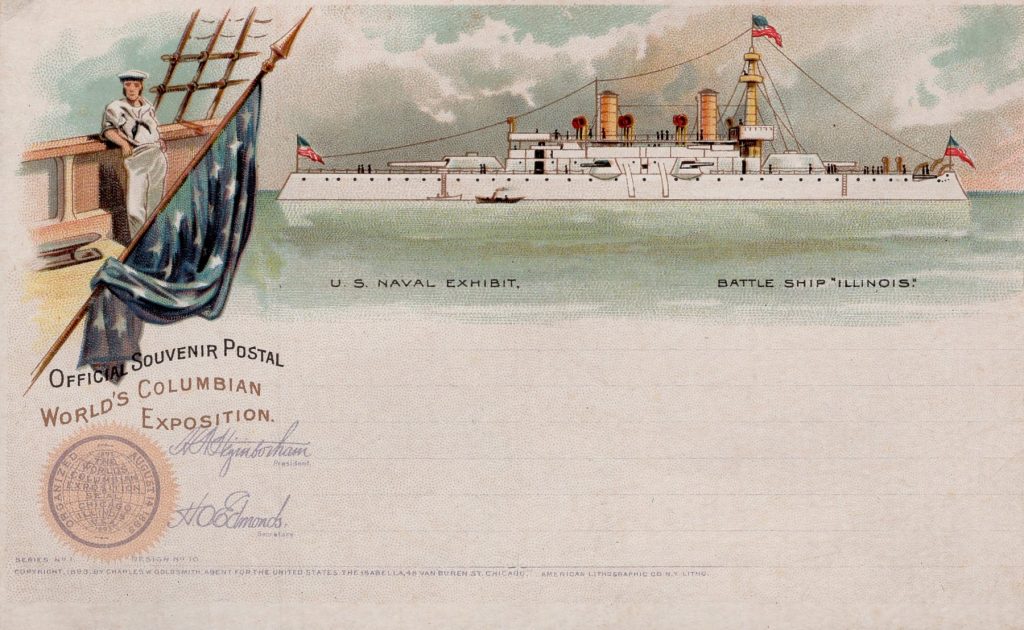 U. S. NAVAL EXHIBIT,
BATTLE SHIP "ILLINOIS."
OFFICIAL SOUVENIR POSTAL
WORLD'S COLUMBIAN
EXPOSITION.
President
H. O. Edmonds.
Secretary
ORGANIZED AUGUST 14 1889
THE
WORLD'S
COLUMBIAN
EXPOSITION
SEAL
CHICAGO
SERIES Nº 1. DESIGN Nº 10
COPYRIGHT, 1893, BY CHARLES W. GOLDSMITH, AGENT FOR THE UNITED STATES. THE ISABELLA, 48 VAN BUREN ST. CHICAGO. AMERICAN LITHOGRAPHIC CO. N.Y. LITHO.